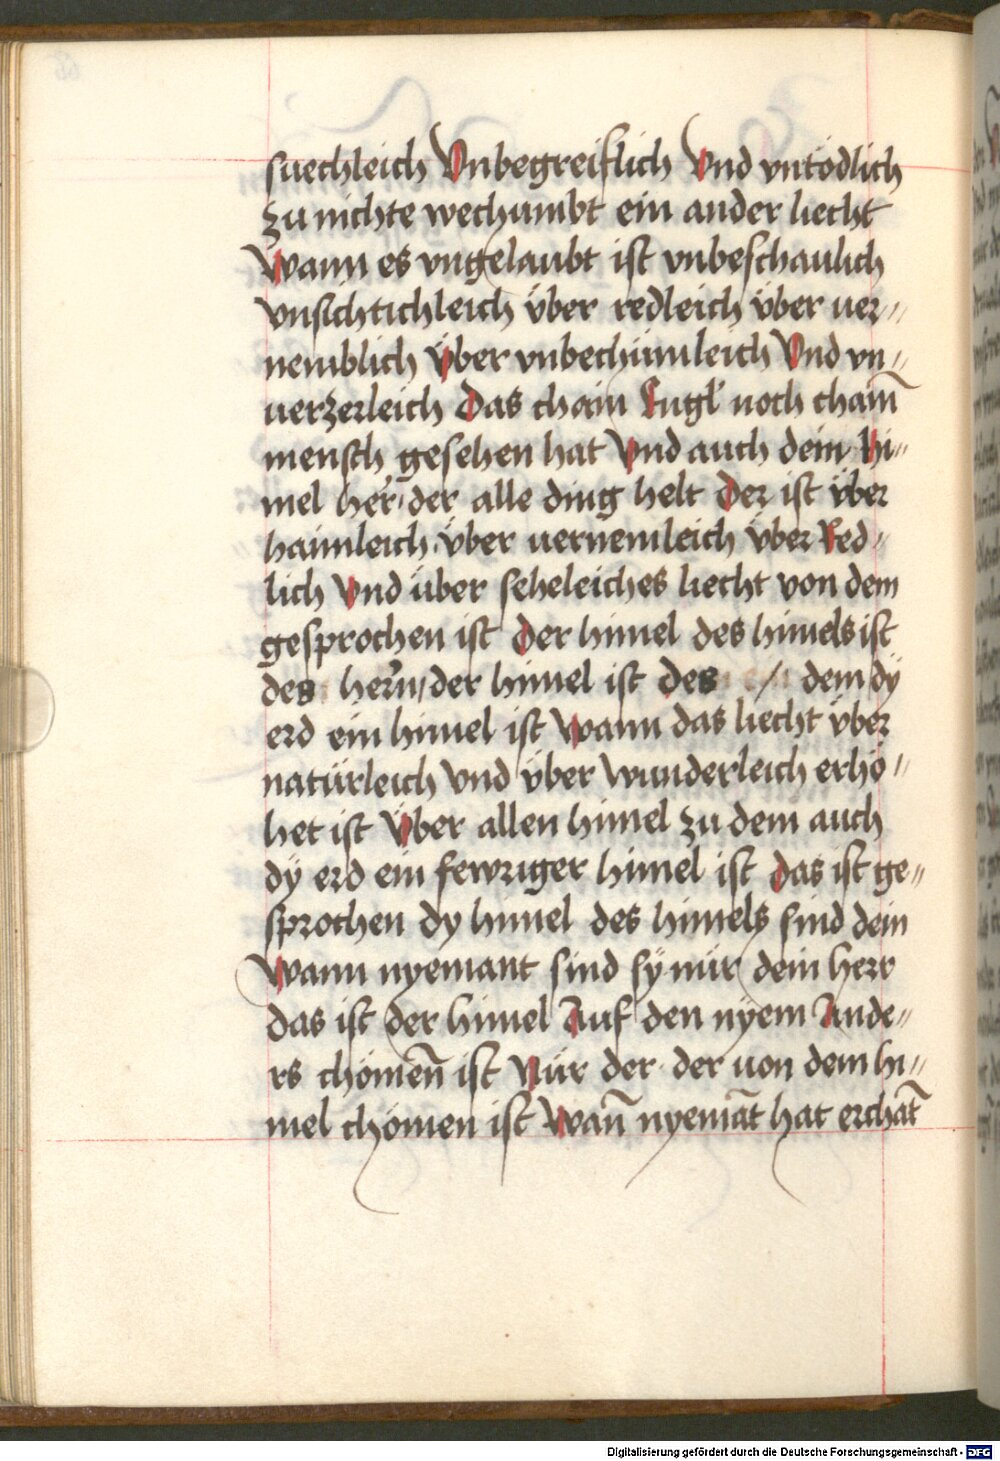 suechleich Vnbegreiflich Vnd vntödlich
zu nichte wechumbt ein ander liecht
Wann es vngelaubt ist vnbeschaulich
vnsichtichleich über redleich über uer〃
nemblich über vnbechümleich Vnd vn〃
uerzerleich Das chain Engl noch chain̄
mensch gesehen hat Vnd auch dein hi〃
mel her̄ der alle ding helt Der ist über
haimleich über uernemleich über Red〃
lich Vnd über seheleiches liecht von dem
gesprochen ist Der himel des himels ist
des hern / der himel ist des / dem dÿ
erd ein himel ist Wann das liecht über
natürleich Vnd über wunderleich erhö〃
het ist Über allen himel zu dem auch
dÿ erd ein fewriger himel ist das ist ge〃
sprochen dy himel des himels sind dein
Wann nyemant sind sÿ nür dein herr
das ist der himel Auf den nÿem Ande〃
rs chömen̄ ist Nür der der uon dem hi〃
mel chömen ist Wan̄ nyemāt hat erchāt
Digitalisierung gefördert durch die Deutsche Forschungsgemeinschaft - DFG